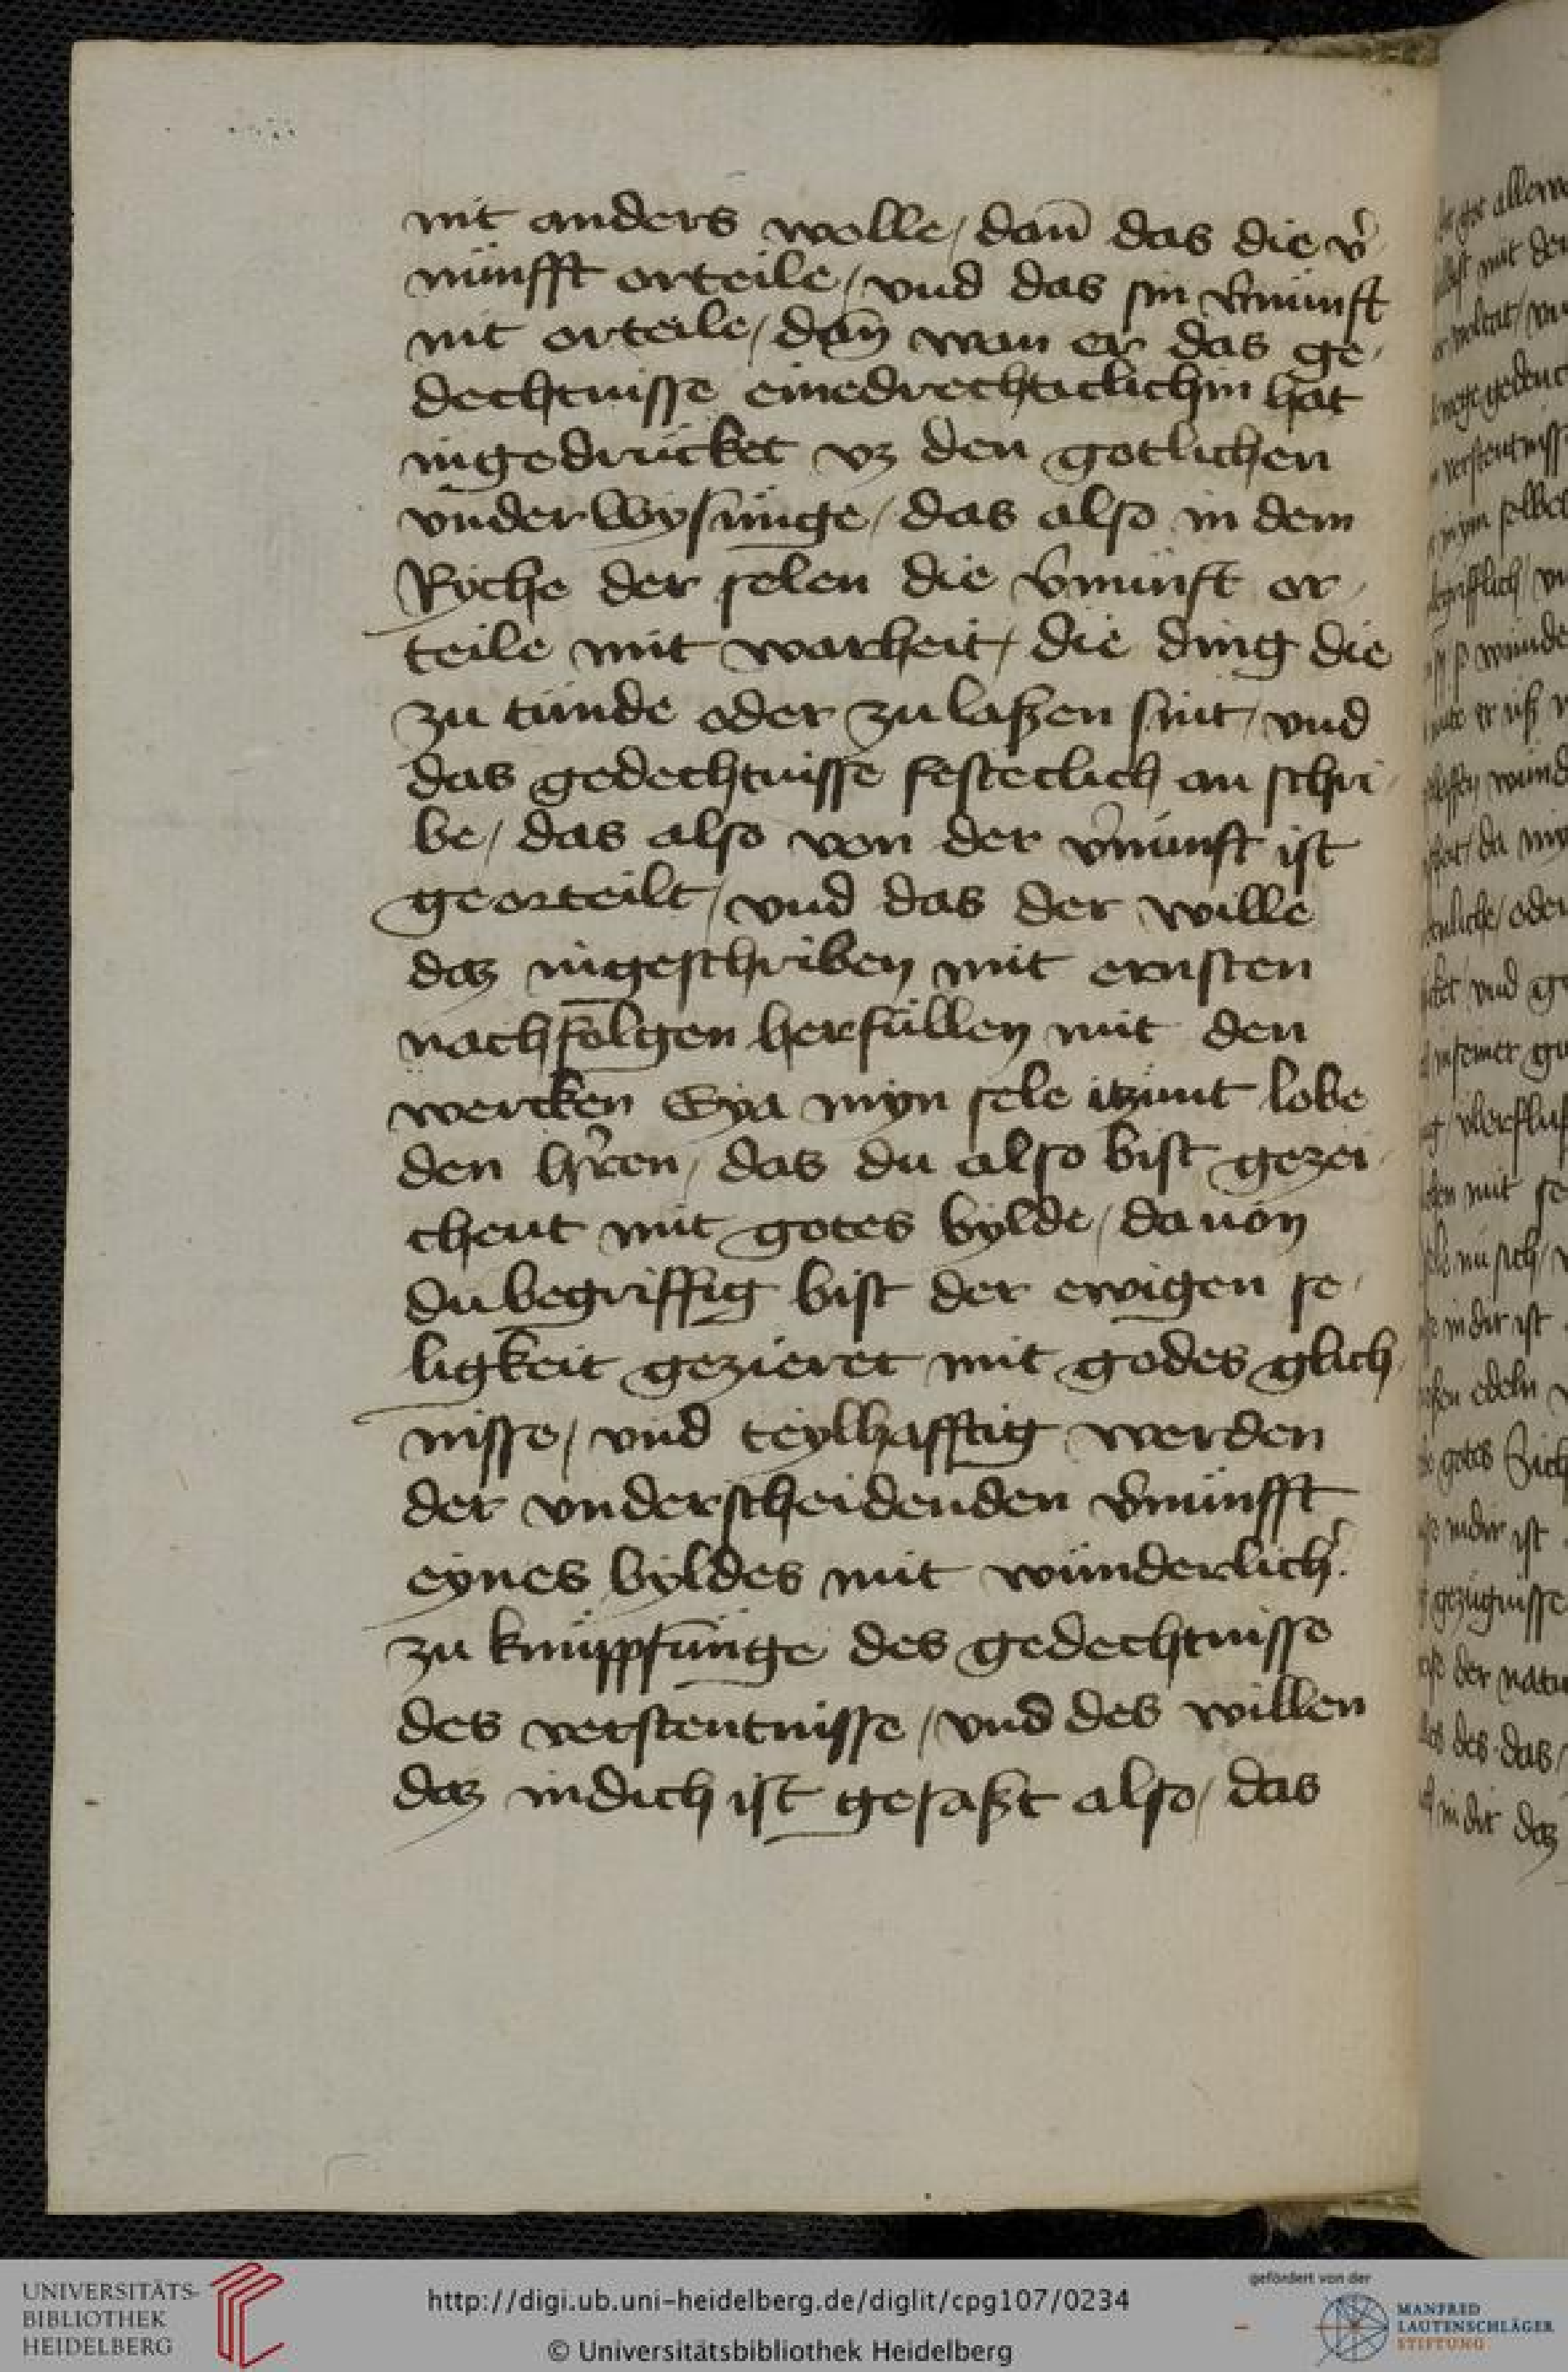 nit anders wolle / dan̄ das die v̾
nünfft orteile / vnd das sin v̾nünft
nit orteile / dan̄ wan er das ge-
dechtnisse einedrechteclichin hat
ingedrücket vz den gotlichen
vnderwysünge / das also in dem
Ryche der selen die v̾nünft or-
teile mit warheit / die ding die
zu tünde oder zu laßen sint / vnd
das gedechtnisse festeclich an schri-
be / das also von der v̾nünft ist
georteilt / vnd das der wille
daz ingeschriben mit ernsten
nachfolgen herfüllen mit den
wercken Eya myn sele itzünt lobe
den h̾ren / das du also bist gezei-
chent mit gotes bylde / da von
du begriffig bist der ewigen se-
ligkeit gezieret mit godes glich-
nisse / vnd teylhafftig werden
der vnderscheidenden v̾nünfft
eynes byldes mit wünderlich̾
zu knüppfünge des gedechtnisse
des verstentnisse / vnd des willen
daz in dich ist gesaßt also / das
UNIVERSITÄTS-
BIBLIOTHEK
HEIDELBERG
http://digi.ub.uni-heidelberg.de/diglit/cpg107/0234
© Universitätsbibliothek Heidelberg
gefördert von der
MANFRED
LAUTENSCHLÄGER
STIFTUNG